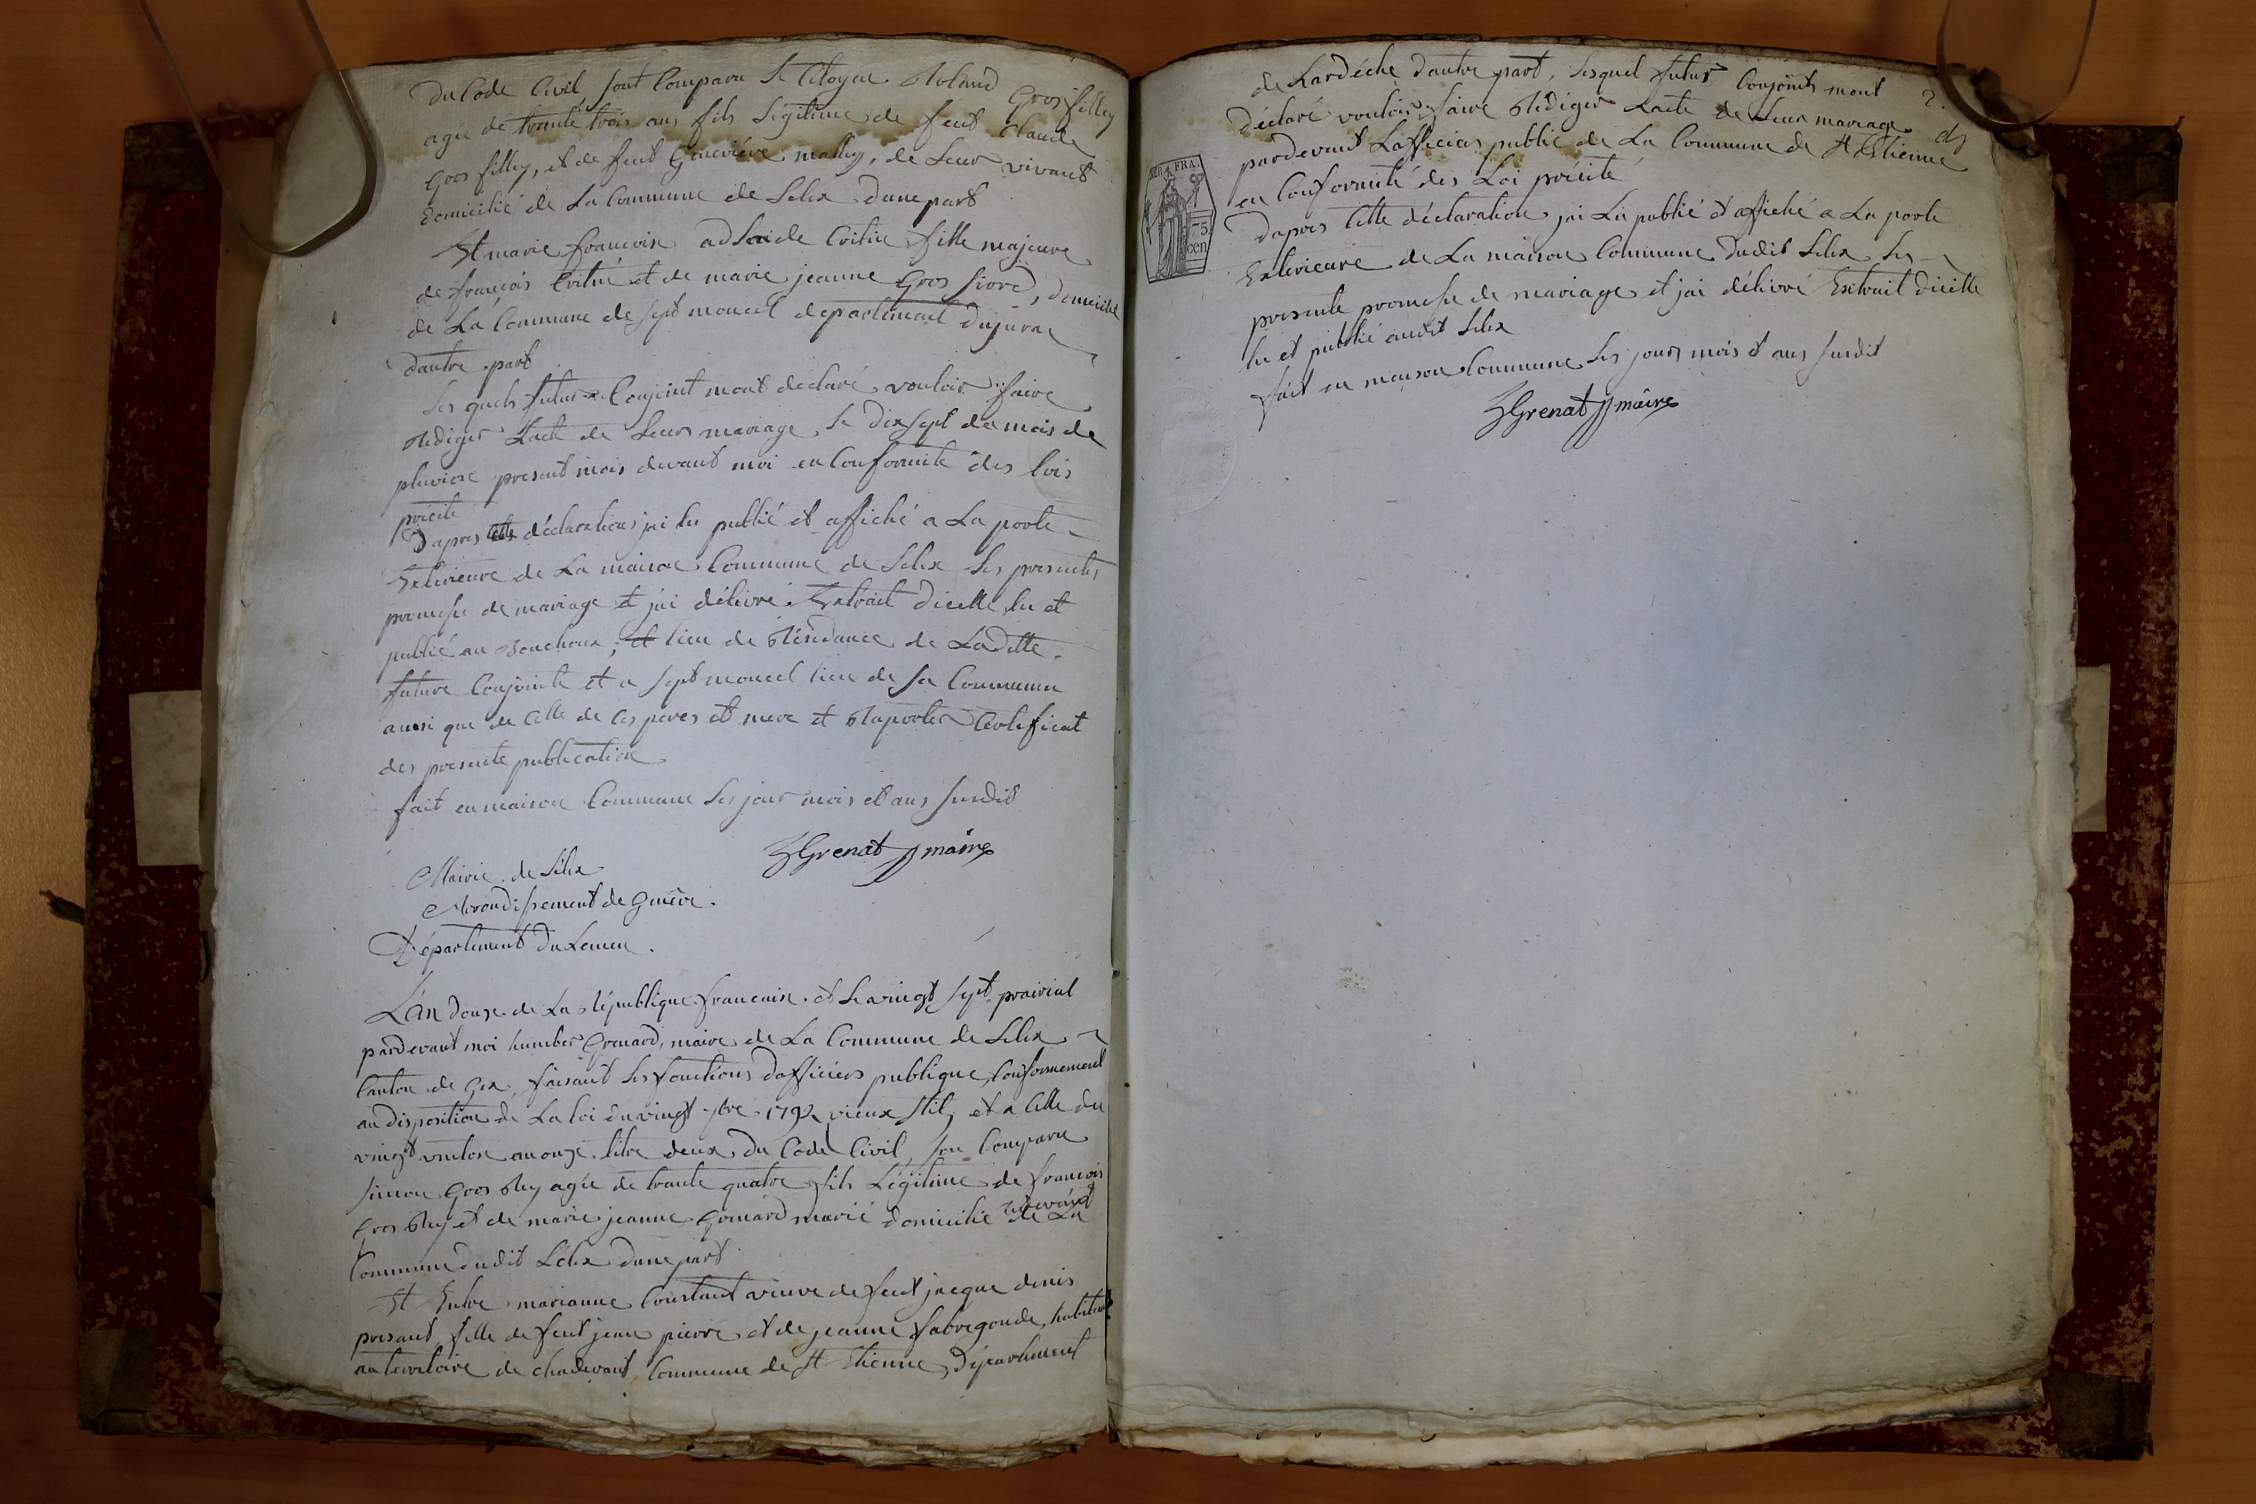 Du Code Civil sont Comparu Le Citoyen Roland Gros fillex
agée de trante trois ans fils Légitime de feut Claude
Gros filley, et de feut Geneviéve mathey, de Leur vivant
domicilié de La Commune de Lelex dune part
Et marie francoise adLaide fille majeure
de françois et de marie jeanne Gros , domicilié
de La Commune de sept moncel departement du jura
dautre part
Les quels futur Conjoint mont declaré vouloir faire
Rediger Lacte de Leurs mariage, Le dix sept du mois de
pluviose present mois devant moi en Conformité des lois
précité
Dapres cette déclaration jai Lu publié et affiché a La porte
Exterieure de La maison Commune de Lelex Les presentes
promesse de mariage et jai délivré Extrait dicelle, lu et
publié au Bouchoux, et lieu de Résidance de Laditte
future Conjointe et a sept moncel lieu de sa Commune
aussi que de Celle de Ces peres et mere et Raporter Certificat
des presente publication
fait en maison Commune Les jour mois et ans susdit
Grenat maire
Mairie de Lélex
Arrondissement de Genève.
Département du Leman.
L'An douze de La République francaise et Le vingt sept prairial
pardevant moi humber Grenard, maire de La Commune de Lelex
Canton de Gex, faisant Les fonctions dofficiers publique, Conformement
au disposition de La loi du vingt 7bre 1792 vieux stil, et a Celle du
vingt ventose an onze titre deux du Code Civil son Comparu
Simon Gros agée de trante quatre fils Légitime de françois
Gros et de marie jeanne Grenard marié domicilié de La
Commune dudit Lélex dune part
Et Entre marianne Courtant veuve de feut jacque denis
presant, fille de feut jean pierre et de jeanne fabregoude, habitant
au territoire de chadevant, Commune de St Etienne, Département
2.
de Lardéche dautre part, Lesquel futur Conjoints mont
déclaré vouloir faire Rédiger Lacte de Leur mariage
pardevant Lofficier public de La Commune de St Etienne
en Conformité des Loi précité
Dapres Cette déclaration jai Lu publié et affiché a La porte
Exterieure de La maison Commune Dudit Lelex Les
presente promesse de mariage et jai délivré Extrait dicelle
lu et publié audit Lelex
fait en maison Commune Les jours mois et ans susdit
Grenat maire
REP. FRA.
75
cen